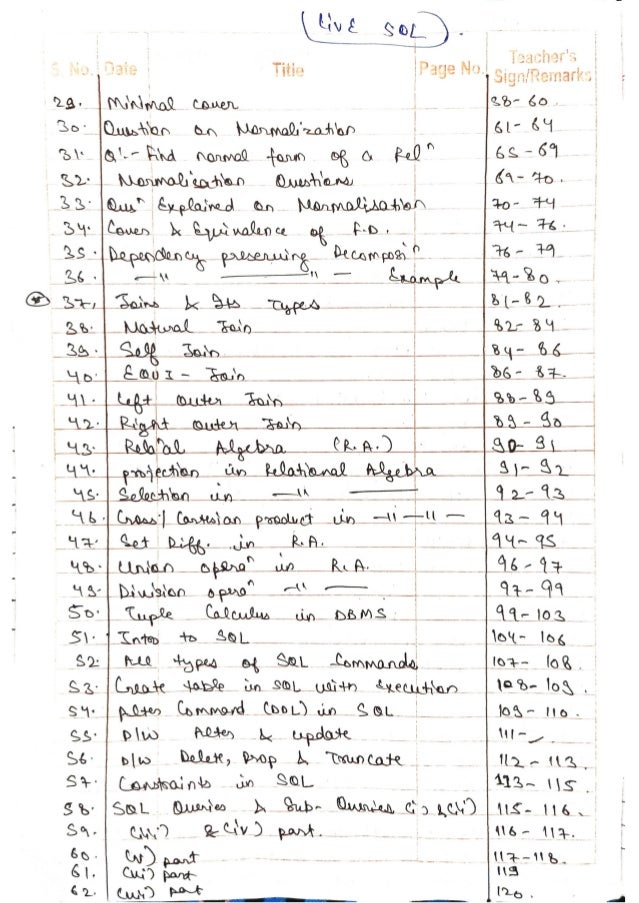 (LIVE SQL).
S. No. Date Title Page No. Teacher's Sign/Remarks
29. Minimal cover 58-60.
30. Question on Normalization 61-64
31. Q:- Find normal form of a Relⁿ 65-69
32. Normalisation Questions 69-70.
33. Quesⁿ Explained on Normalisation 70-74
34. Cover & Equivalence of F.D. 74-76.
35. Dependency preserving Decomposiⁿ 76-79
36. —"— —"— Example 79-80.
37, Joins & Its Types 81-82.
38. Natural Join 82-84
39. Self Join 84-86
40. EQUI-Join 86-87.
41. Left Outer Join 88-89
42. Right outer Join 89-90
43. Relaⁿal Algebra (R.A.) 90-91
44. projection in Relational Algebra 91-92
45. Selection in —"— 92-93
46. Cross/Cartesian product in —"—"— 93-94
47. Set Diff. in R.A. 94-95
48. Union operaⁿ in R.A. 96-97
49. Division operaⁿ —"— 97-99
50. Tuple Calculus in DBMS 99-103
51. Intro to SQL 104-106
52. All types of SQL Commands 107-108.
53. Create table in SQL with Execution 108-109.
54. Alter Command (DDL) in SQL 109-110.
55. D/W Alter & update 111-
56. D/W Delete, Drop & Truncate 112-113.
57. Constraints in SQL 113-115.
58. SQL Queries & Sub-Queries (i) & (ii) 115-116.
59. (iii) & (iv) part. 116-117.
60. (v) part 117-118.
61. (vi) part 119
62. (vii) part 120.